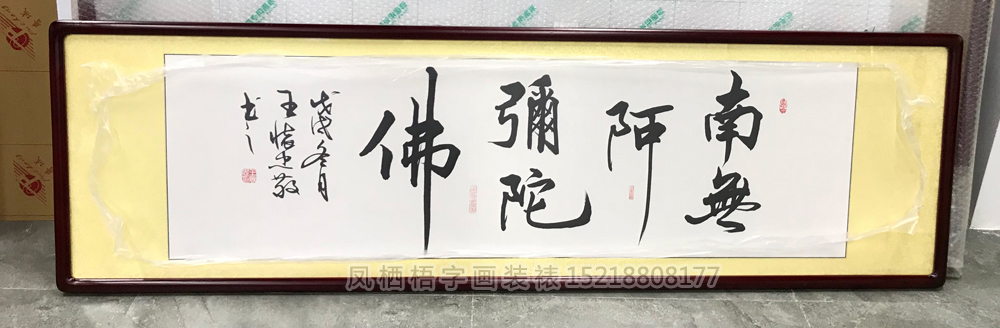 南無
阿
彌陀
佛
戊戌冬月
王
敬
书
凤栖梧字画装裱15218808177